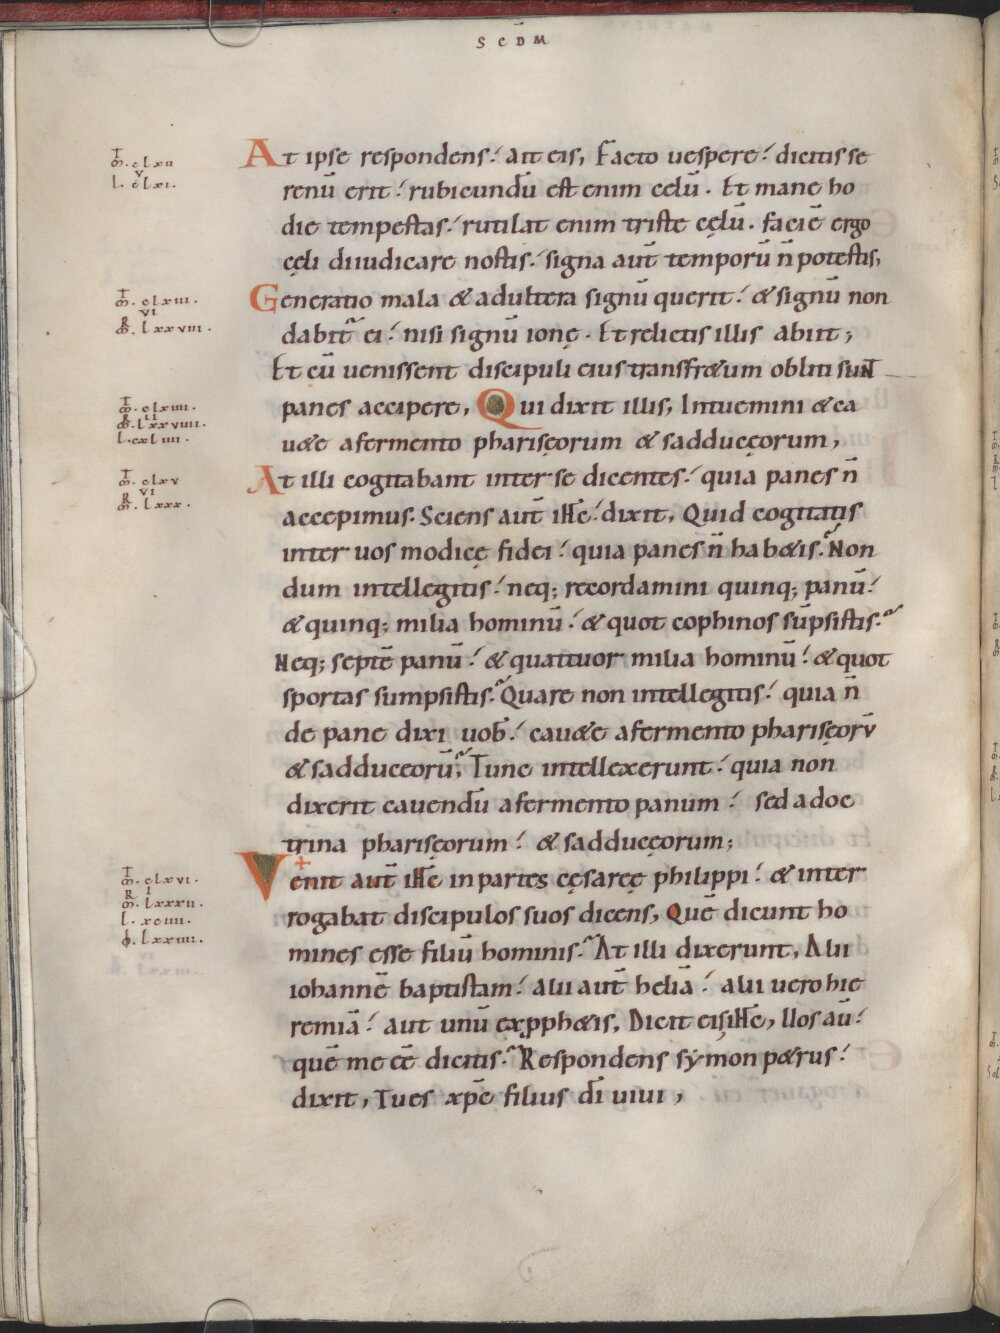 SCDM
At ipse respondens. ait eis, Facto uespere. dicitis se
renū erit. rubicundū est enim celū. Et mane ho
die tempestas. rutilat enim triste cęlū. faciē ergo
cęli diiudicare nostis. signa aut̄ temporū n̄ potestis,
Generatio mala & adultera signū querit. & signū non
dabit̄ ei. nisi signū ionę. Et relictis illis abiit;
Et cū uenissent discipuli eius transfr&um obliti sunt
panes accipere, Qui dixit illis, Intuemini & ca
u&e afermento pharisęorum & sadducęorum,
At illi cogitabant inter se dicentes. quia panes n̄
accepimus. Sciens aut̄ ihc̄. dixit, Quid cogitatis
inter uos modicę fidei. quia panes n̄ hab&is. Non
dum intellegitis. neq; recordamini quinq; panū.
& quinq; milia hominū. & quot cophinos sūpsistis.
Neq; septē panū. & quattuor milia hominū. & quot
sportas sumpsistis. Quare non intellegitis. quia n̄
de pane dixi uob̄. cau&e afermento pharisęorv̄
& sadduceorū, Tunc intellexerunt. quia non
dixerit cauendū afermento panum. sed adoc
trina pharisęorum. & sadducęorum;
Venit aut̄ ihc̄ in partes cęsaręę philippi. & inter
rogabat discipulos suos dicens, Quē dicunt ho
mines esse filiū hominis. At illi dixerunt, Alii
iohannē baptistam. alii aut̄ heliā. alii uero hie
remiā. aut unū expph&is, Dicit eis ihc̄, Uos aū.
quē me eē dicitis. Respondens symon p&rus.
dixit, Tu es xp̄c filius dī uiui,
m̄. clxii
v
l. clxi.
m̄. clxiii.
R vi
m̄. lxxviii.
m̄. clxiiii.
R ii
m̄. lxxviiii.
l. cxliiii.
m̄. clxv
R vi
m̄. lxxx.
m̄. clxvi.
R i
m̄. lxxxii.
l. xciiii.
lxxiiii.